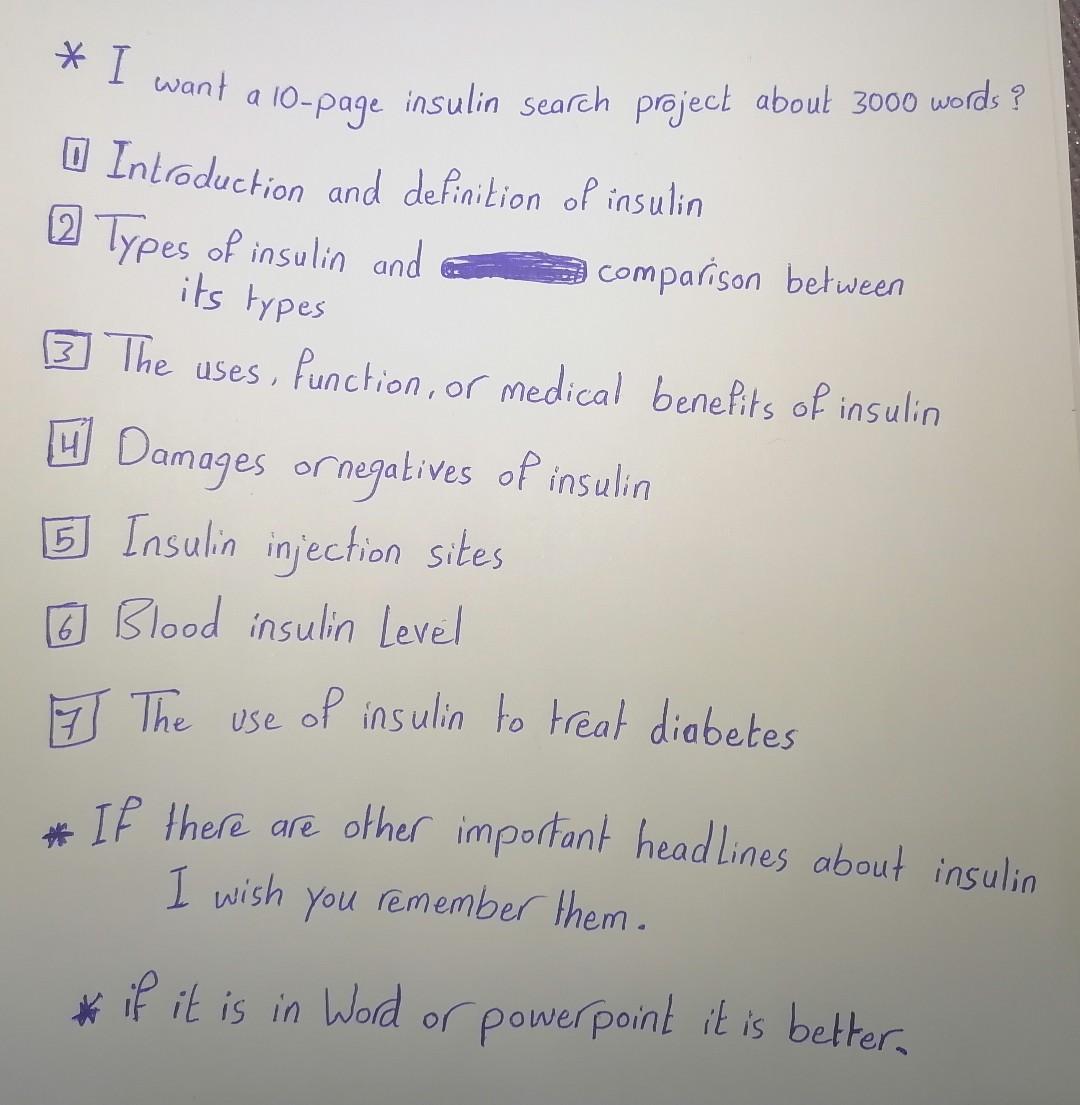 * I want a 10-page insulin search project about 3000 words?
1 Introduction and definition of insulin
2 Types of insulin and comparison between
its types
3 The uses, function, or medical benefits of insulin
4 Damages or negatives of insulin
5 Insulin injection sites
6 Blood insulin Level
7 The use of insulin to treat diabetes
* If there are other important headlines about insulin
I wish you remember them.
* if it is in Word or powerpoint it is better.